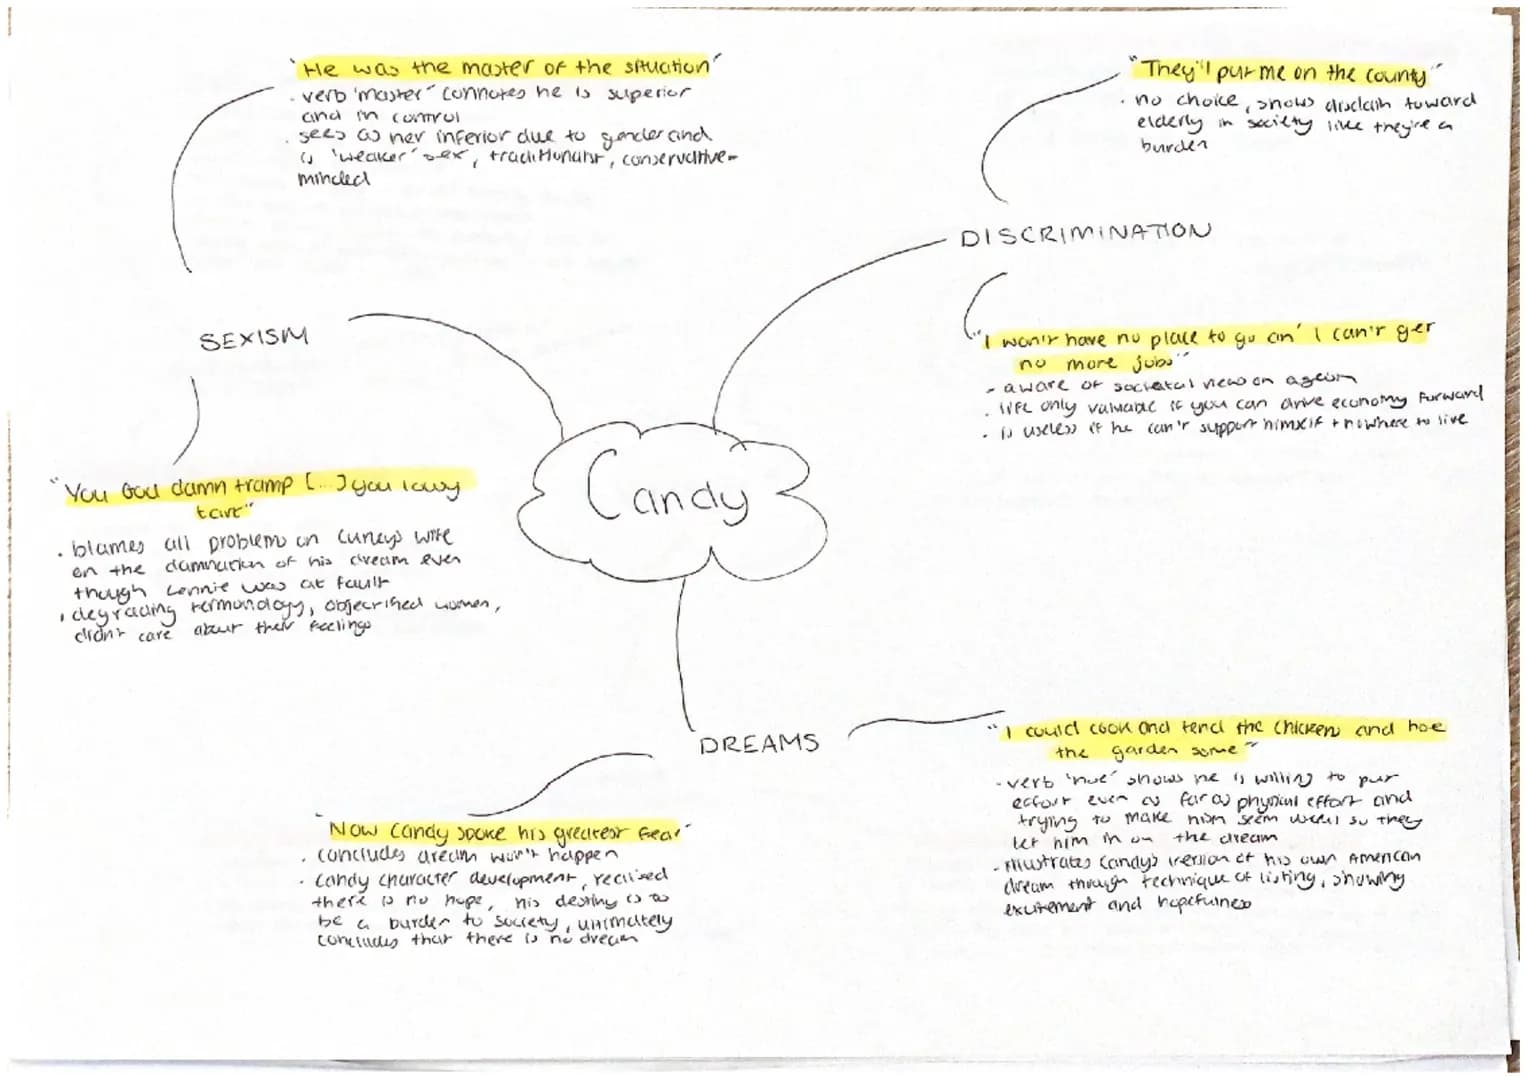 "He was the master of the situation"
. verb 'master' connotes he is superior
and in control
. sees as her inferior due to gender and
is 'weaker' sex, traditionalist, conservative-
minded
SEXISM
"You God damn tramp [...] you lousy
tart"
. blames all problems on Curleys wife
on the damnation of his dream even
though Lennie was at fault
. degrading terminology, objectified women,
didn't care about their feelings
"They'll put me on the county"
. no choice, shows disdain toward
elderly in society like they're a
burden
DISCRIMINATION
"I won't have no place to go an' I can't get
no more jobs"
- aware of societal views on ageism
. life only valuable if you can drive economy forward
. is useless if he can't support himself + nowhere to live
Candy
DREAMS
"Now Candy spoke his greatest fear"
. concludes dream won't happen
. Candy character development, realised
there is no hope, his destiny is to
be a burden to society, ultimately
concludes that there is no dream
"I could cook and tend the chickens and hoe
the garden some"
- verb 'hoe' shows he is willing to put
effort even as far as physical effort and
trying to make him seem useful so they
let him in on the dream
- illustrates Candy's version of his own American
dream through technique of listing, showing
excitement and hopefulness